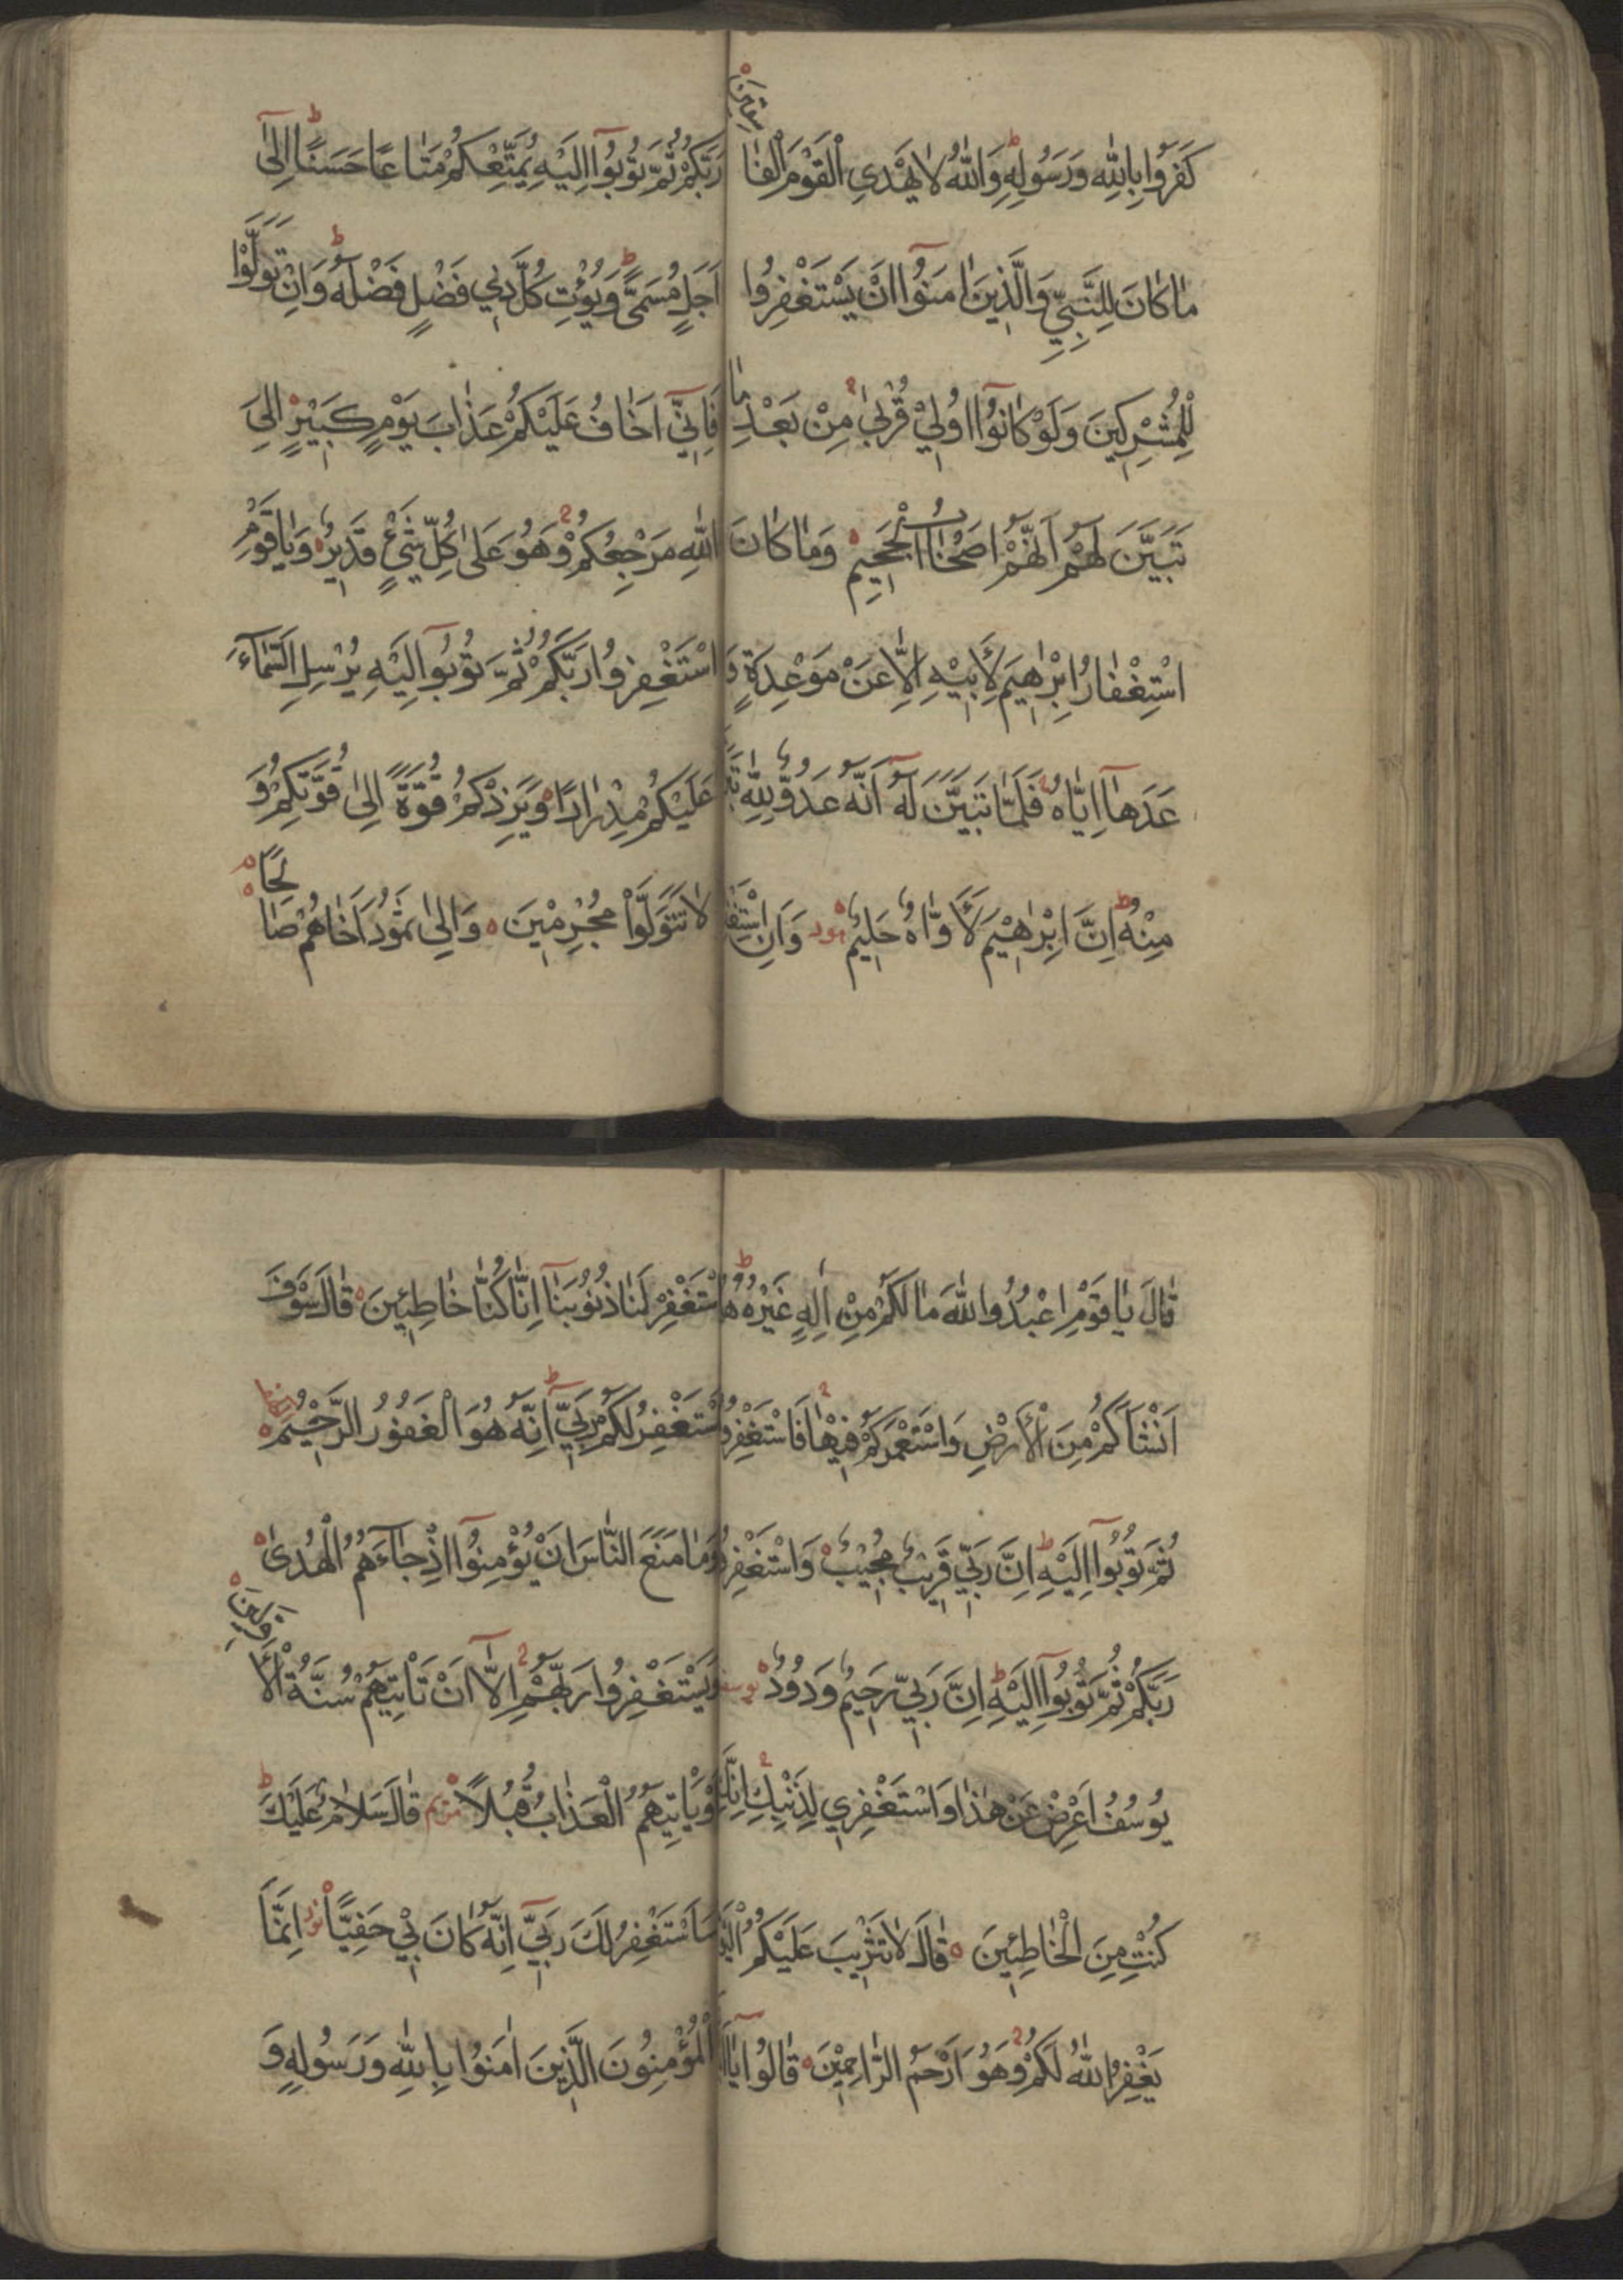 كَفَرُوا بِاللّٰهِ وَرَسُولِهِ وَاللّٰهُ لَا يَهْدِي الْقَوْمَ الْفَا
سِقِينَ
مَا كَانَ لِلنَّبِيِّ وَالَّذِينَ اٰمَنُوا اَنْ يَسْتَغْفِرُوا
لِلْمُشْرِكِينَ وَلَوْ كَانُوا اُولِي قُرْبٰى مِنْ بَعْدِ مَا
تَبَيَّنَ لَهُمْ اَنَّهُمْ اَصْحَابُ الْجَحِيمِ وَمَا كَانَ
اسْتِغْفَارُ اِبْرٰهِيمَ لِاَبِيهِ اِلَّا عَنْ مَوْعِدَةٍ وَ
عَدَهَا اِيَّاهُ فَلَمَّا تَبَيَّنَ لَهُ اَنَّهُ عَدُوٌّ لِلّٰهِ تَبَرَّاَ
مِنْهُ اِنَّ اِبْرٰهِيمَ لَاَوَّاهٌ حَلِيمٌ هود وَاَنِ اسْتَغْفِرُوا
رَبَّكُمْ ثُمَّ تُوبُوا اِلَيْهِ يُمَتِّعْكُمْ مَتَاعًا حَسَنًا اِلٰى
اَجَلٍ مُسَمًّى وَيُؤْتِ كُلَّ ذِي فَضْلٍ فَضْلَهُ وَاِنْ تَوَلَّوْا
فَاِنِّي اَخَافُ عَلَيْكُمْ عَذَابَ يَوْمٍ كَبِيرٍ اِلَى
اللّٰهِ مَرْجِعُكُمْ وَهُوَ عَلٰى كُلِّ شَيْءٍ قَدِيرٌ وَيَا قَوْمِ
اسْتَغْفِرُوا رَبَّكُمْ ثُمَّ تُوبُوا اِلَيْهِ يُرْسِلِ السَّمَاءَ
عَلَيْكُمْ مِدْرَارًا وَيَزِدْكُمْ قُوَّةً اِلٰى قُوَّتِكُمْ وَ
لَا تَتَوَلَّوْا مُجْرِمِينَ وَاِلٰى ثَمُودَ اَخَاهُمْ صَا
لِحًا
قَالَ يَا قَوْمِ اعْبُدُوا اللّٰهَ مَا لَكُمْ مِنْ اِلٰهٍ غَيْرُهُ هُوَ
اَنْشَاَكُمْ مِنَ الْاَرْضِ وَاسْتَعْمَرَكُمْ فِيهَا فَاسْتَغْفِرُوهُ
ثُمَّ تُوبُوا اِلَيْهِ اِنَّ رَبِّي قَرِيبٌ مُجِيبٌ وَاسْتَغْفِرُوا
رَبَّكُمْ ثُمَّ تُوبُوا اِلَيْهِ اِنَّ رَبِّي رَحِيمٌ وَدُودٌ يوسف
يُوسُفُ اَعْرِضْ عَنْ هٰذَا وَاسْتَغْفِرِي لِذَنْبِكِ اِنَّكِ
كُنْتِ مِنَ الْخَاطِئِينَ قَالَ لَا تَثْرِيبَ عَلَيْكُمُ الْيَوْمَ
يَغْفِرُ اللّٰهُ لَكُمْ وَهُوَ اَرْحَمُ الرَّاحِمِينَ قَالُوا يَا اَبَانَا
اسْتَغْفِرْ لَنَا ذُنُوبَنَا اِنَّا كُنَّا خَاطِئِينَ قَالَ سَوْفَ
اَسْتَغْفِرُ لَكُمْ رَبِّي اِنَّهُ هُوَ الْغَفُورُ الرَّحِيمُ
وَمَا مَنَعَ النَّاسَ اَنْ يُؤْمِنُوا اِذْ جَاءَهُمُ الْهُدٰى
وَيَسْتَغْفِرُوا رَبَّهُمْ اِلَّا اَنْ تَاْتِيَهُمْ سُنَّةُ الْاَ
وَّلِينَ
اَوْ يَاْتِيَهُمُ الْعَذَابُ قُبُلًا مريم قَالَ سَلَامٌ عَلَيْكَ
سَاَسْتَغْفِرُ لَكَ رَبِّي اِنَّهُ كَانَ بِي حَفِيًّا نور اِنَّمَا
الْمُؤْمِنُونَ الَّذِينَ اٰمَنُوا بِاللّٰهِ وَرَسُولِهِ وَ